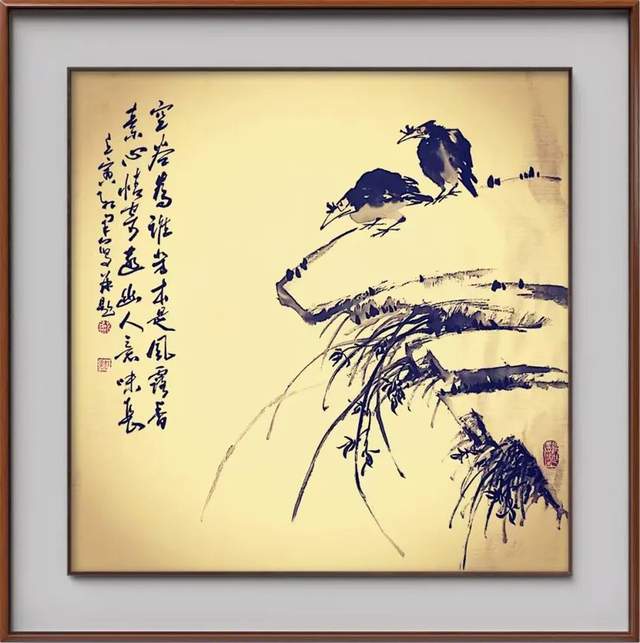 空谷為誰芳本是風露香
素心情寄遠幽人意味長
壬寅寫並題